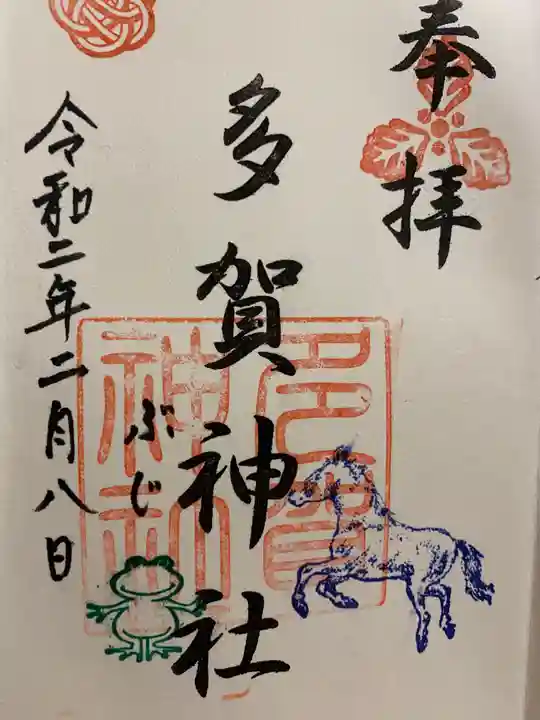 奉拝
多賀神社
ぶじ
令和二年二月八日
多賀
神社